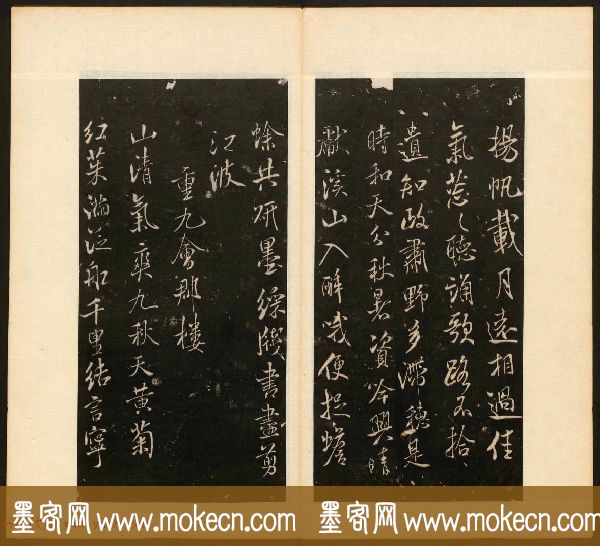 揚帆載月遠相過佳
氣葱〻聽誦歌路不拾
遺知政肅野多滯穗是
時和天分秋暑資吟興晴
獻溪山入醉哦便捉蟾
蜍共研墨綵牋書盡剪
江波
重九會郡樓
山清氣爽九秋天黃菊
紅茱滿泛船千里結言寧
墨客网 www.mokecn.com 墨客网 www.mokecn.com